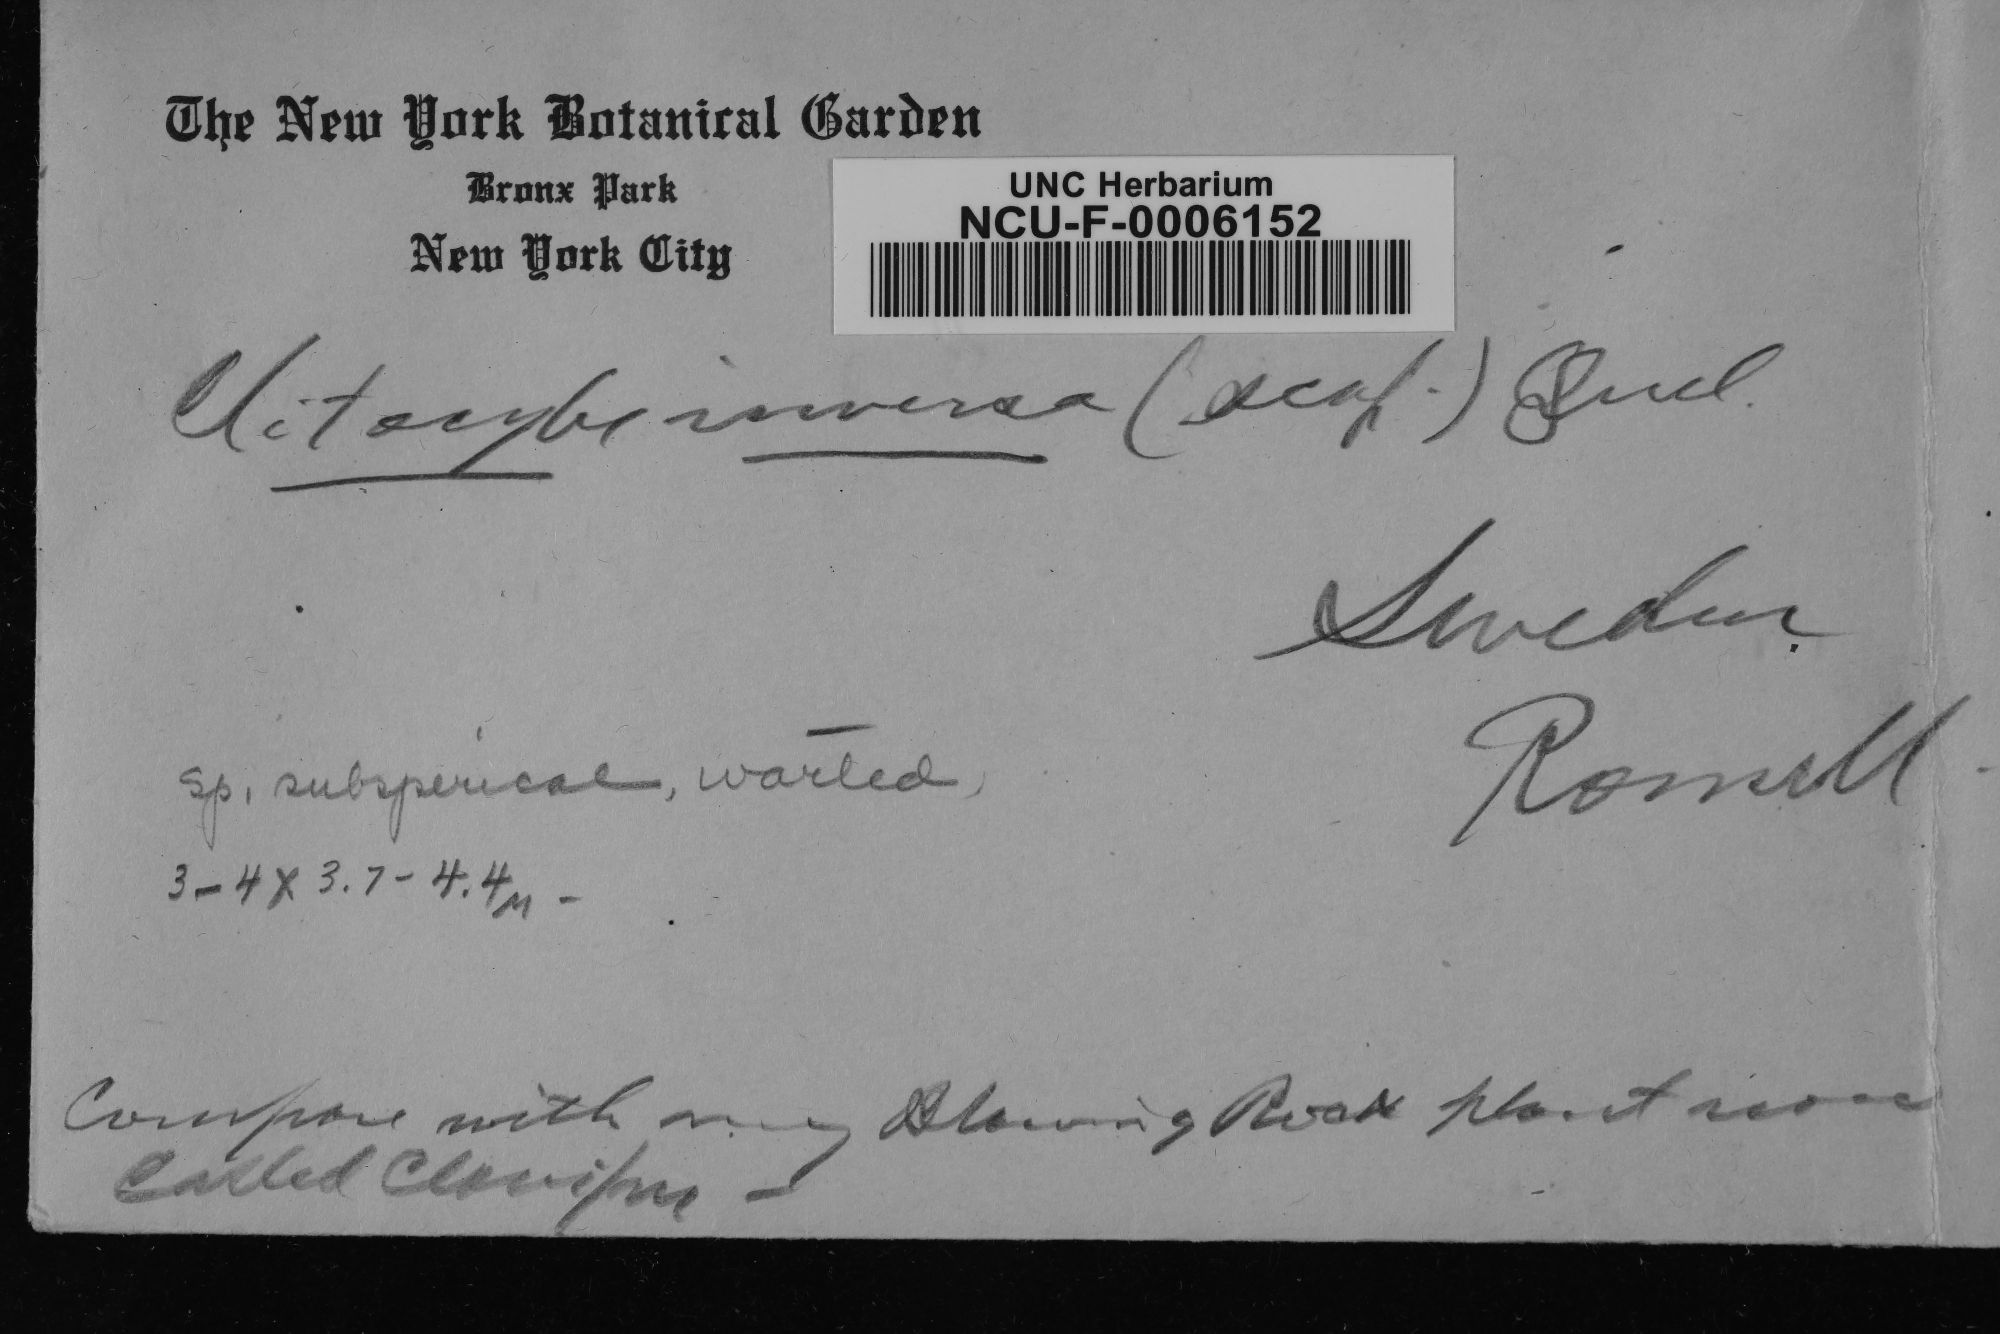 The New York Botanical Garden
Bronx Park
New York City
UNC Herbarium
NCU-F-0006152
Clitocybe inversa (Scop.) Quel.
Sweden
Romell
sp. subsperical, warted,
3-4 x 3.7-4.4 µ -
Compare with my Blowing Rock plant
called Clavipes -